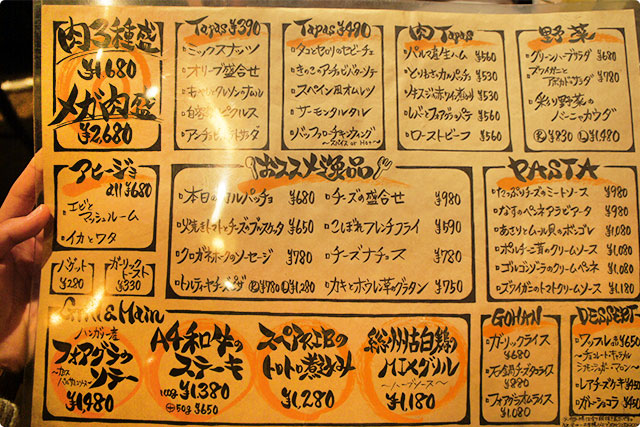 肉3種盛
¥1,680
メガ肉盛
¥2,680
Tapas ¥390
・ミックスナッツ
・オリーブ盛合せ
Tapas ¥490
・タコとセロリのセビーチェ
・きのこのアンチョビバターソテー
・スペイン風オムレツ
・サーモンタルタル
・バッファローチキンウィング
〜スパイス or ホット〜
肉 Tapas
・パルマ産生ハム ¥560
・とりささカルパッチョ ¥530
¥530
・レバーとフォアグラのパテ ¥560
・ローストビーフ ¥560
野菜
・グリーンハーブサラダ ¥680
・スワイガニと
アボカドのサラダ ¥780
・炙り野菜の
バーニャカウダ
R ¥830 L ¥1,480
アヒージョ
all ¥680
・エビと
マッシュルーム
・イカとワタ
・バゲット
¥280
・ガーリック
トースト
¥330
おススメ逸品
・本日のカルパッチョ ¥680
・火焼きトマトとチーズのブルスケッタ ¥650
・クロガネポークのソーセージ ¥780
・トルティヤチーズピザ R ¥780 L ¥1,280
・チーズの盛合せ ¥980
・こぼれフレンチフライ ¥590
・チーズナチョス ¥780
・カキとホウレン草のグラタン ¥750
PASTA
・たっぷりチーズのミートソース ¥980
・なすのペンネアラビアータ ¥980
・あさりとムール貝のボンゴレ ¥1,080
・ポルチーニ茸のクリームソース ¥1,080
・ゴルゴンゾーラのクリームペンネ ¥1,080
・ズワイガニのトマトクリームソース ¥1,180
Grill & Main
ハンガリー産
フォアグラの
ソテー
¥1,480
A4和牛の
ステーキ
100g ¥1,380
⊕50g ¥650
スペアリブの
トロトロ煮込み
¥1,280
総州古白鶏の
ハーブグリル
〜ハーブソース〜
¥1,180
GOHAN
・ガーリックライス
¥680
・石焼チーズタコライス
¥880
・フォアグラオムライス
¥1,080
DESSERT
・ワッフル各種 ¥650
・レアチーズケーキ ¥450
・ガトーショコラ ¥450